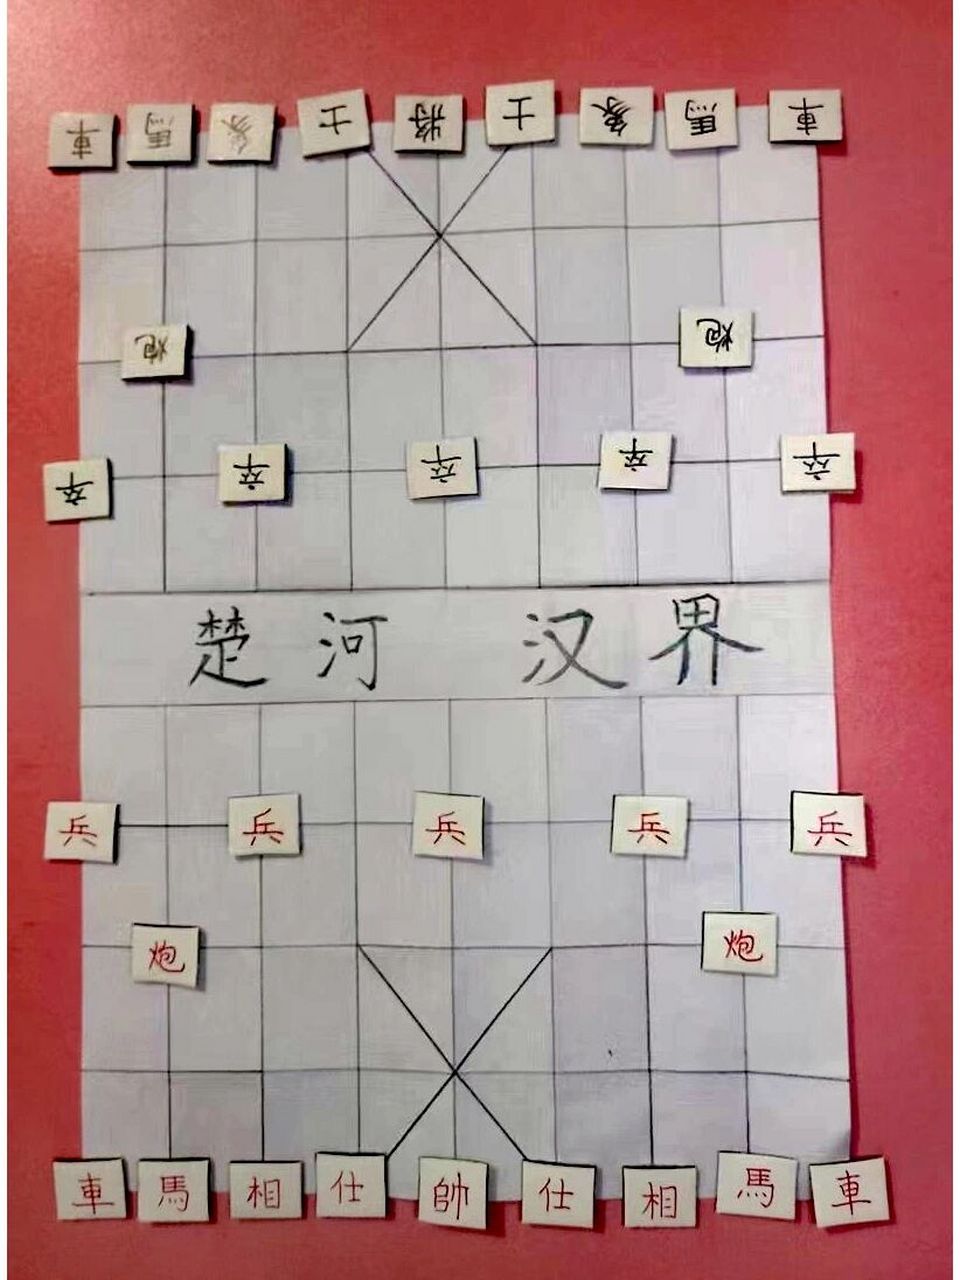 車 馬 象 士 將 士 象 馬 車
炮 炮
卒 卒 卒 卒 卒
楚河 汉界
兵 兵 兵 兵 兵
炮 炮
車 馬 相 仕 帥 仕 相 馬 車